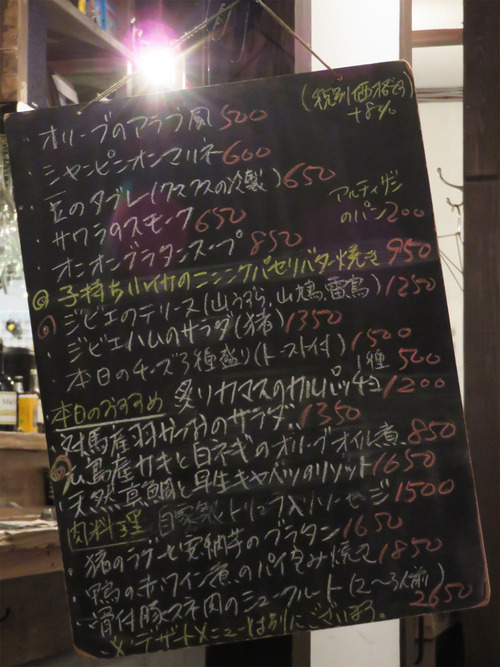 (税別価格です)
+8%
・オリーブのアラブ風 500
・シャンピニオンマリネ 600
・豆のタブレ(クスクスの冷製) 650
・サワラのスモーク 650
アルティザンのパン 200
・オニオングラタンスープ 850
◎子持ち小イカのニンニクパセリバター焼き 950
・ジビエのテリーヌ(山うずら、山鳩、雷鳥) 1250
・ジビエハムのサラダ(猪) 1350
・本日のチーズ3種盛り(トースト付) 1500
1種 500
本日のおすすめ 炙リカマスのカルパッチョ 1200
・対馬産羽かつおのサラダ 1350
広島産カキと白ネギのオリーブオイル煮 850
・天然真鯛と早生キャベツのリゾット 1650
肉料理 自家製トリュフ入りソーセージ 1500
・猪のラグーと安納芋のグラタン 1650
・鴨の赤ワイン煮のパイ包み焼き 1850
・骨付豚スネ肉のシュークルート(2~3人前) 2650
※デザートメニューは別にございます。